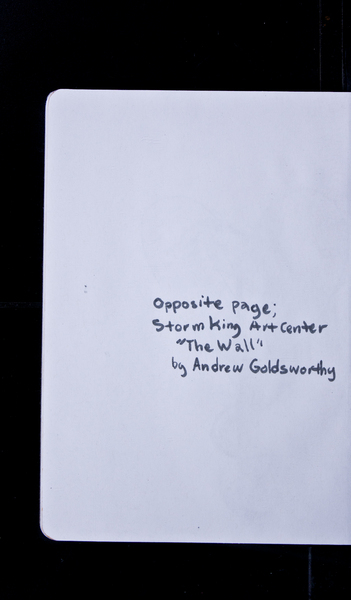 Opposite page;
Storm King Art Center
"The Wall"
by Andrew Goldsworthy